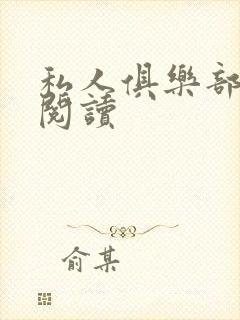 私人俱樂部
閱讀
俞某